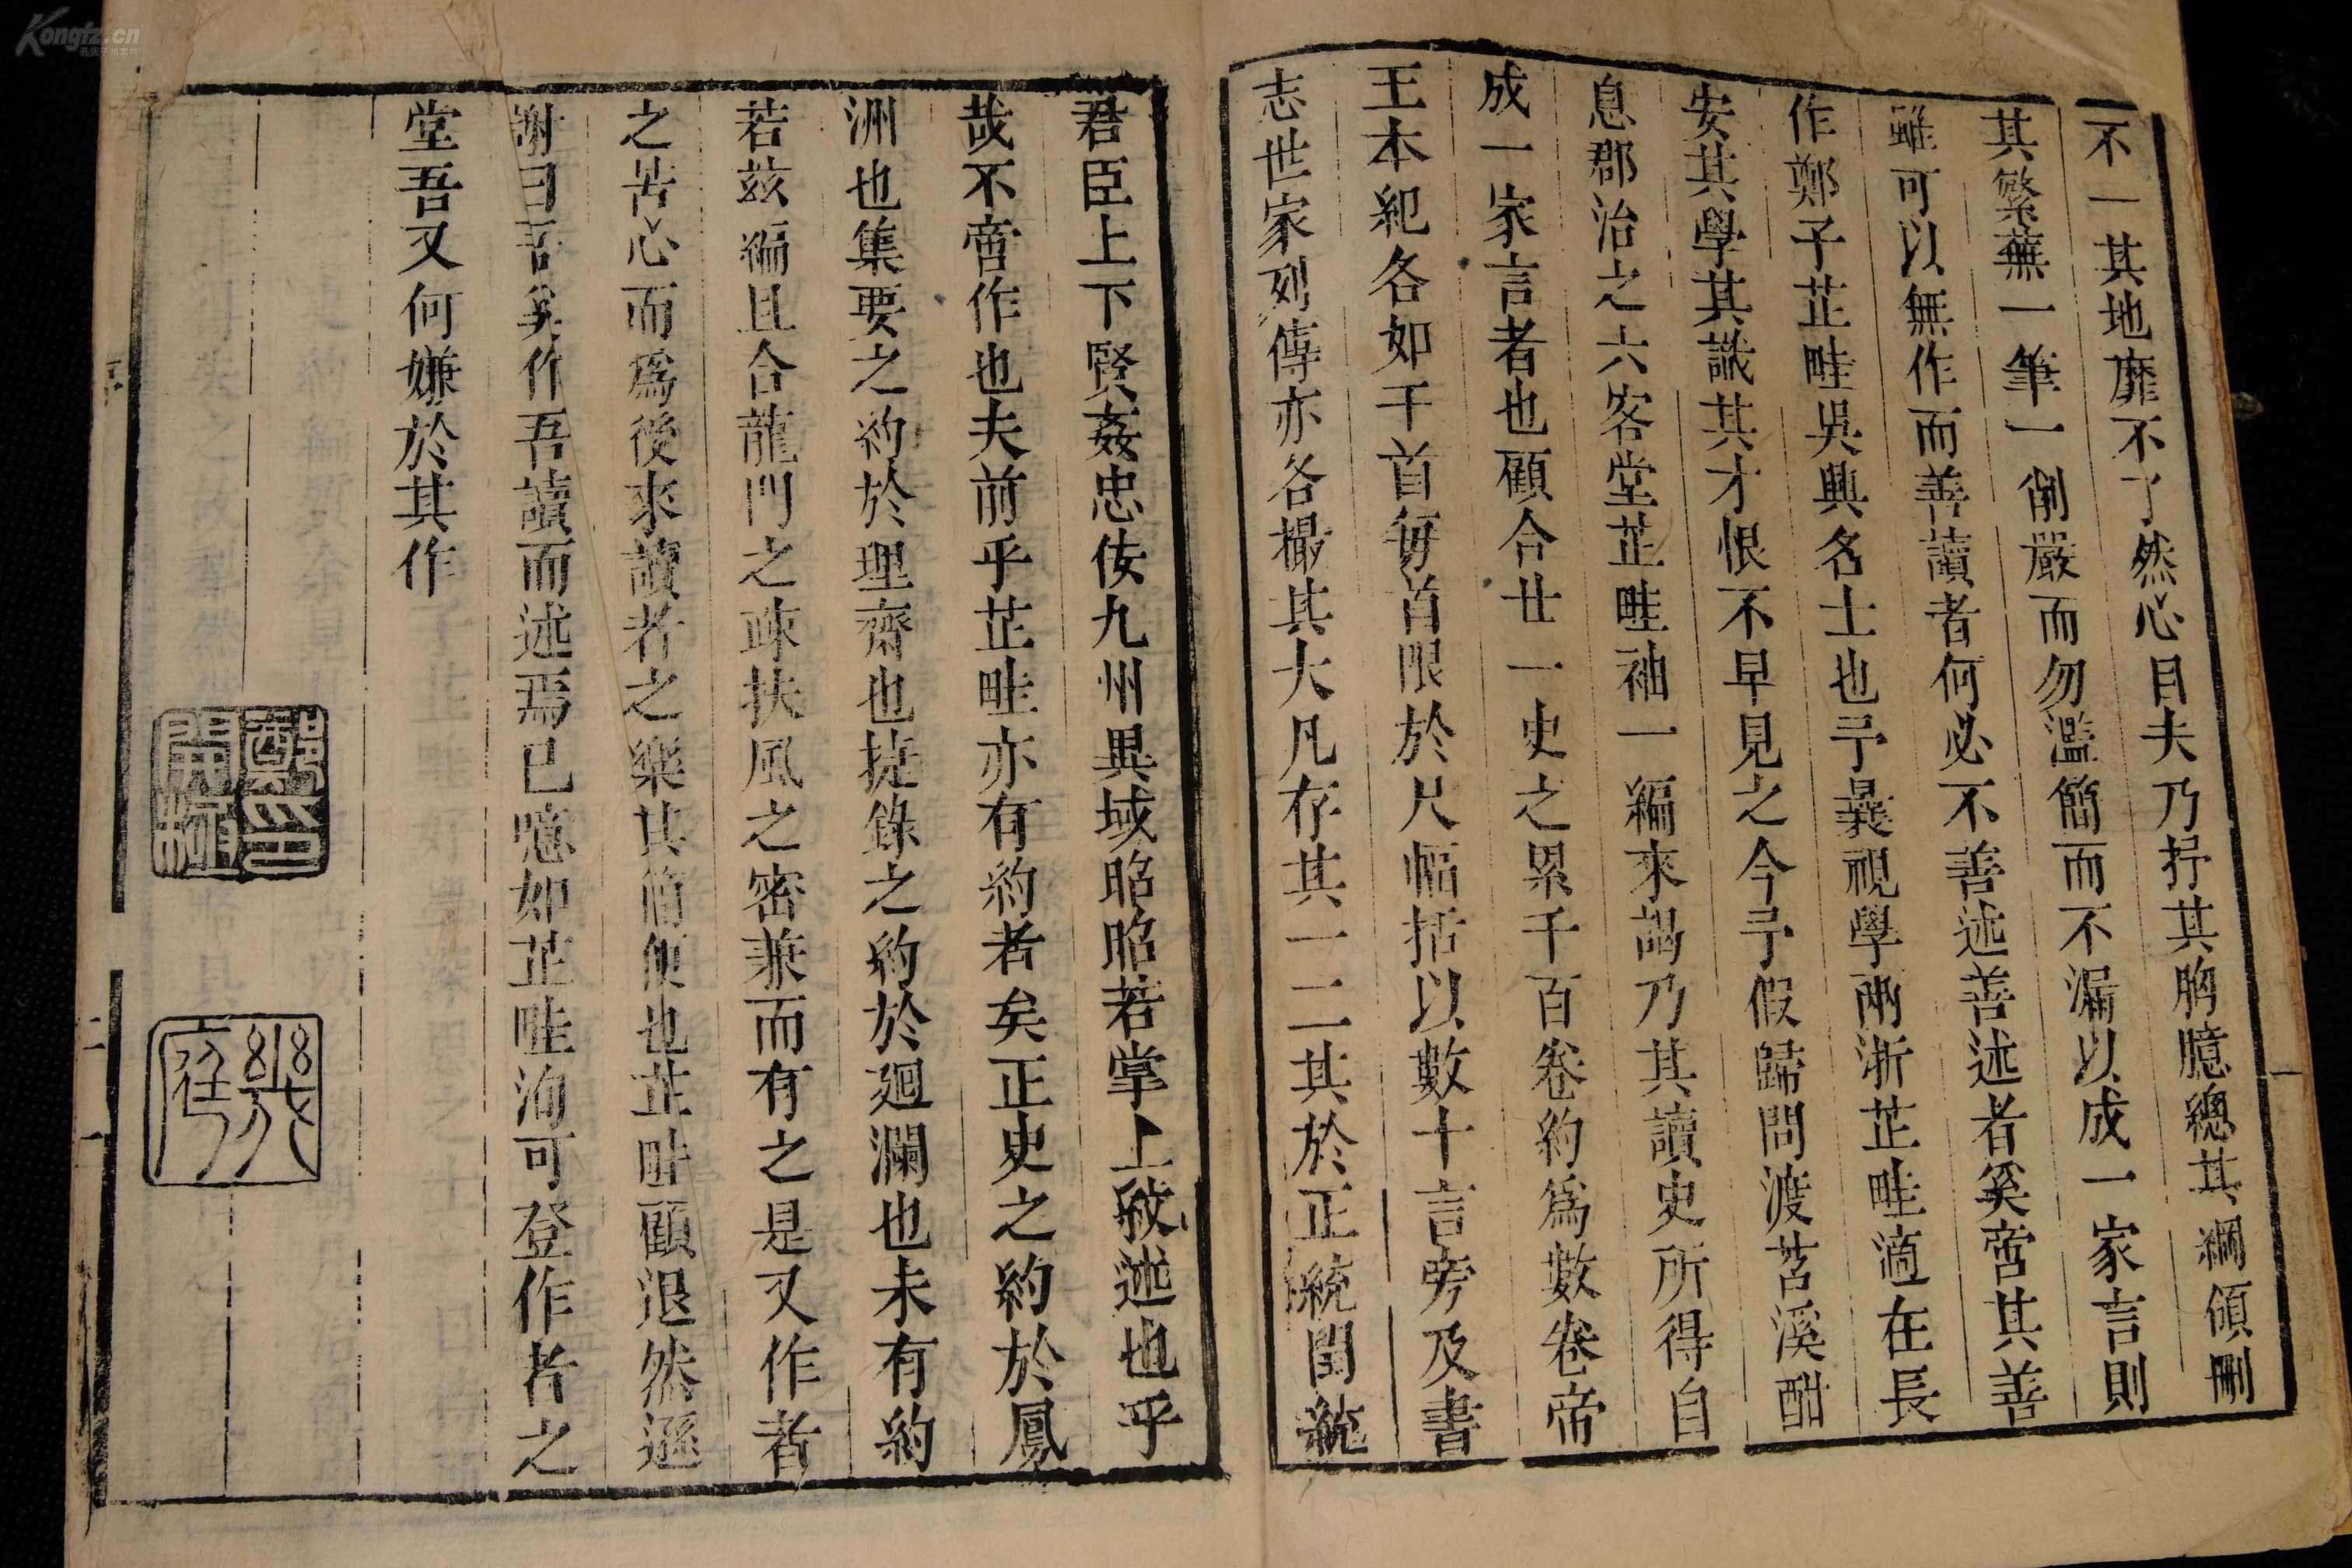 不一其地靡不了然心目夫乃抒其胸臆總其綱領刪
其繁蕪一筆一削嚴而勿濫簡而不漏以成一家言則
雖可以無作而善讀者何必不善述善述者奚啻其善
作鄭子芷畦吳興名士也予曩視學兩浙芷畦適在長
安其學其識其才恨不早見之今予假歸問渡苕溪酣
息郡治之六客堂芷畦袖一編來謁乃其讀史所得自
成一家言者也顧合廿一史之累千百卷約為數卷帝
王本紀各如干首每首限於尺幅括以數十言旁及書
志世家列傳亦各撮其大凡存其一二其於正統閏統
君臣上下賢姦忠佞九州異域昭昭若掌上敘述也乎
哉不啻作也夫前乎芷畦亦有約者矣正史之約於鳳
洲也集要之約於理齋也捷錄之約於迴瀾也未有約
若茲編且合龍門之疎扶風之密兼而有之是又作者
之苦心而為後來讀者之樂其簡便也芷畦顧退然遜
謝曰吾奚作吾讀而述焉已噫如芷畦洵可登作者之
堂吾又何嫌於其作
鄭印
開極
幾庭
序
二
一
Kongfz.cn